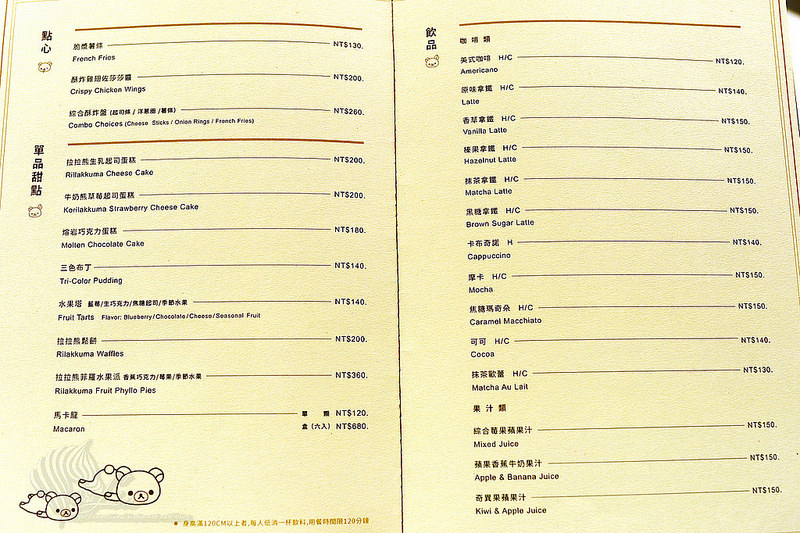 點心
脆漿薯條 NT$130.
French Fries
酥炸雞翅佐莎莎醬 NT$200.
Crispy Chicken Wings
綜合酥炸盤 (起司條 / 洋蔥圈 / 薯條) NT$260.
Combo Choices (Cheese Sticks / Onion Rings / French Fries)
單品甜點
拉拉熊生乳起司蛋糕 NT$200.
Rillakkuma Cheese Cake
牛奶熊草莓起司蛋糕 NT$200.
Korilakkuma Strawberry Cheese Cake
熔岩巧克力蛋糕 NT$180.
Molten Chocolate Cake
三色布丁 NT$140.
Tri-Color Pudding
水果塔 藍莓/生巧克力/焦糖起司/季節水果 NT$140.
Fruit Tarts Flavor: Blueberry/Chocolate/Cheese/Seasonal Fruit
拉拉熊鬆餅 NT$200.
Rilakkuma Waffles
拉拉熊菲羅水果派 香蕉巧克力/莓果/季節水果 NT$360.
Rilakkuma Fruit Phyllo Pies
馬卡龍 單 顆 NT$120.
Macaron 盒 (六入) NT$680.
● 身高滿120CM以上者,每人低消一杯飲料,用餐時間限120分鐘
飲品
咖啡類
美式咖啡 H/C NT$120.
Americano
原味拿鐵 H/C NT$140.
Latte
香草拿鐵 H/C NT$150.
Vanilla Latte
榛果拿鐵 H/C NT$150.
Hazelnut Latte
抹茶拿鐵 H/C NT$150.
Matcha Latte
黑糖拿鐵 H/C NT$150.
Brown Sugar Latte
卡布奇諾 H NT$140.
Cappuccino
摩卡 H/C NT$150.
Mocha
焦糖瑪奇朵 H/C NT$150.
Caramel Macchiato
可可 H/C NT$140.
Cocoa
抹茶歐蕾 H/C NT$130.
Matcha Au Lait
果汁類
綜合莓果蘋果汁 NT$150.
Mixed Juice
蘋果香蕉牛奶果汁 NT$150.
Apple & Banana Juice
奇異果蘋果汁 NT$150.
Kiwi & Apple Juice